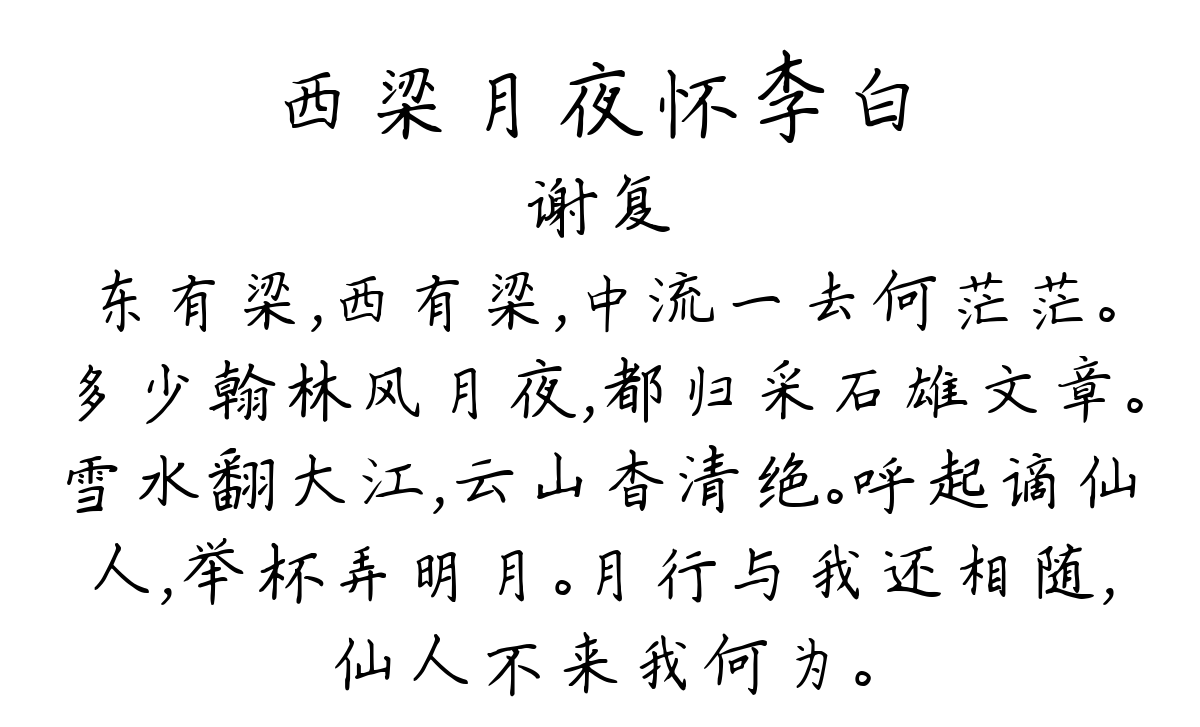 西梁月夜怀李白
谢复
东有梁,西有梁,中流一去何茫茫。
多少翰林风月夜,都归采石雄文章。
雪水翻大江,云山杳清绝。呼起谪仙
人,举杯弄明月。月行与我还相随,
仙人不来我何为。